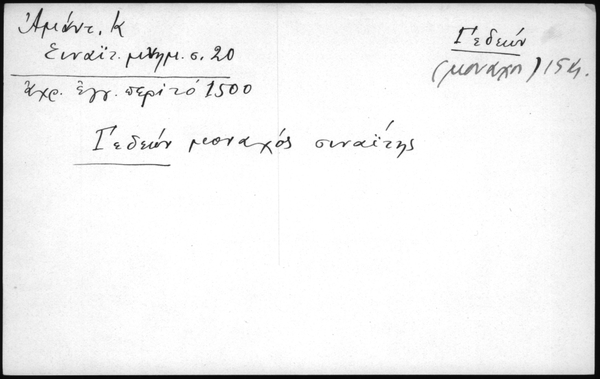 Ἀμάντ. Κ
Σιναϊτ. μνημ. σ. 20
ἀχρ. ἔγγ. περὶ τὸ 1500
Γεδεών
(μοναχοί) 15
Γεδεών μοναχός σιναΐτης